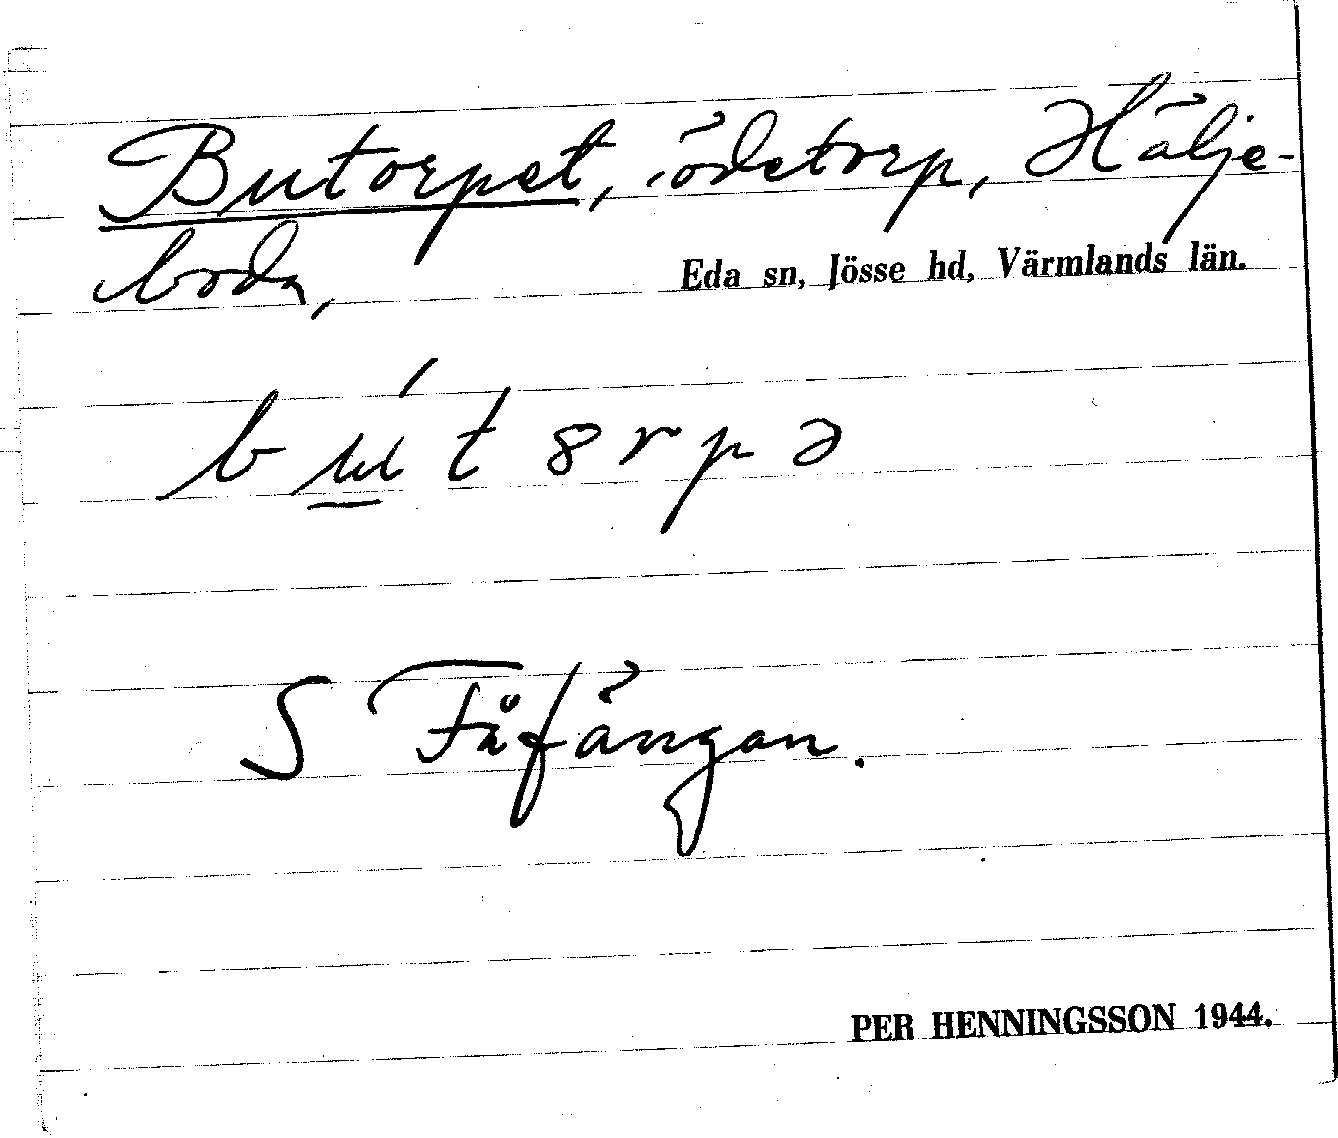 Butorpet, ödetorp, Hälje-
boda,
Eda sn, Jösse hd, Värmlands län.
bu̲t8rpə
S Fåfängan.
PER HENNINGSSON 1944.